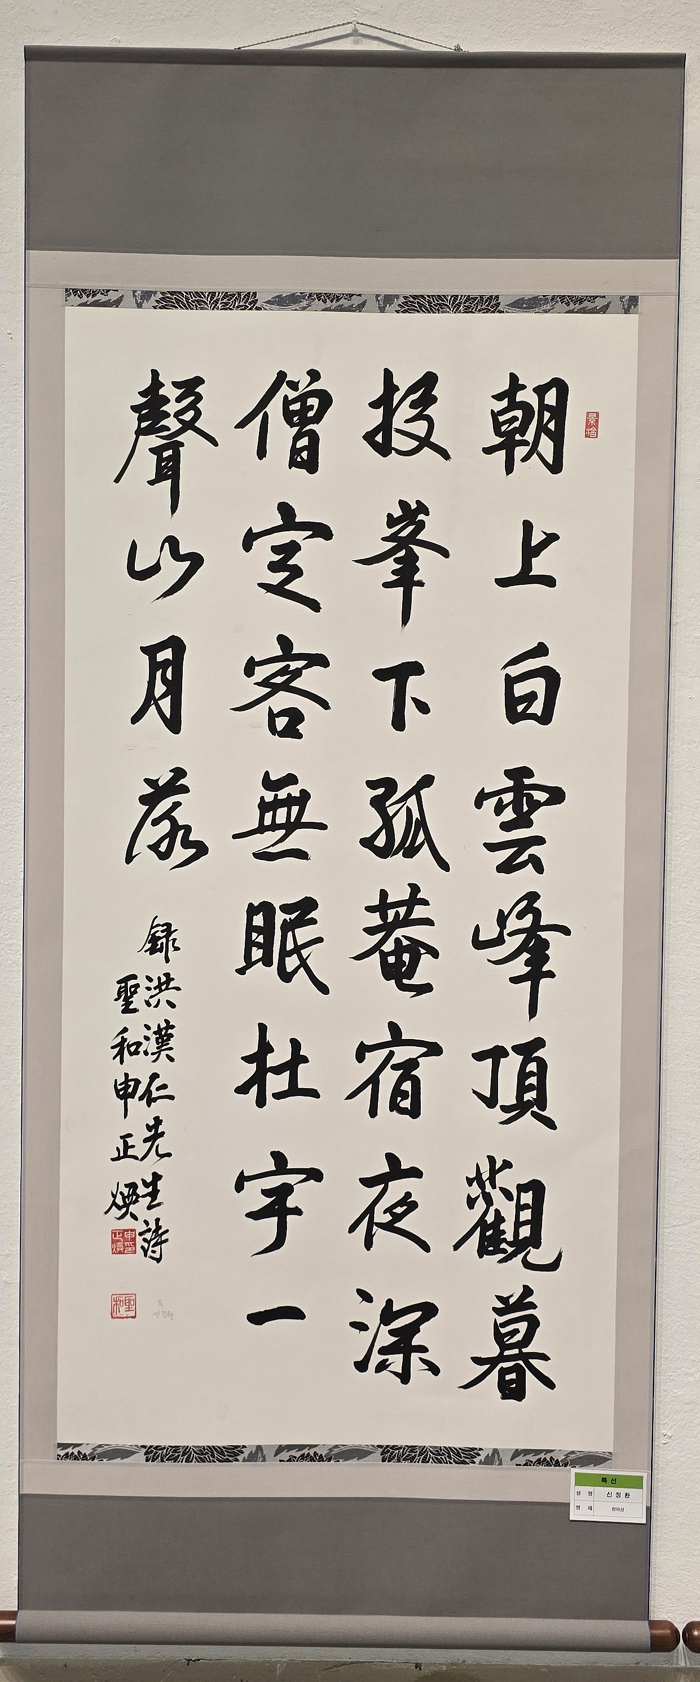 朝上白雲峰頂觀暮
投峯下孤菴宿夜深
僧定客無眠杜宇一
聲山月落
録洪漢仁先生詩
聖和申正煥
申正煥印
聖和
특선
성 명 신정환
명 제